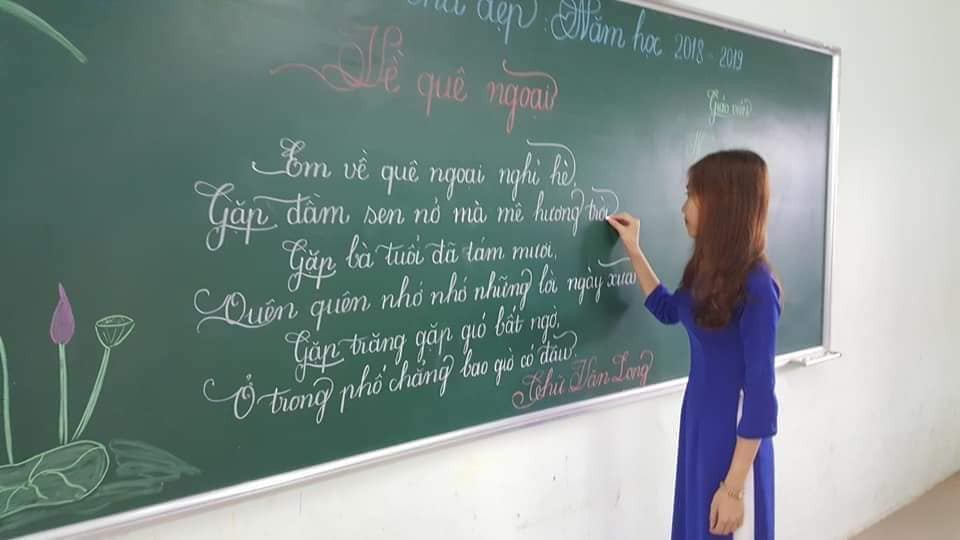 đẹp : Năm học 2018 - 2019
Về quê ngoại
Giáo viên
Em về quê ngoại nghỉ hè,
Gặp đầm sen nở mà mê hương trời.
Gặp bà tuổi đã tám mươi,
Quên quên nhớ nhớ những lời ngày xưa
Gặp trăng gặp gió bất ngờ,
Ở trong phố chẳng bao giờ có đâu.
Chử Văn Long